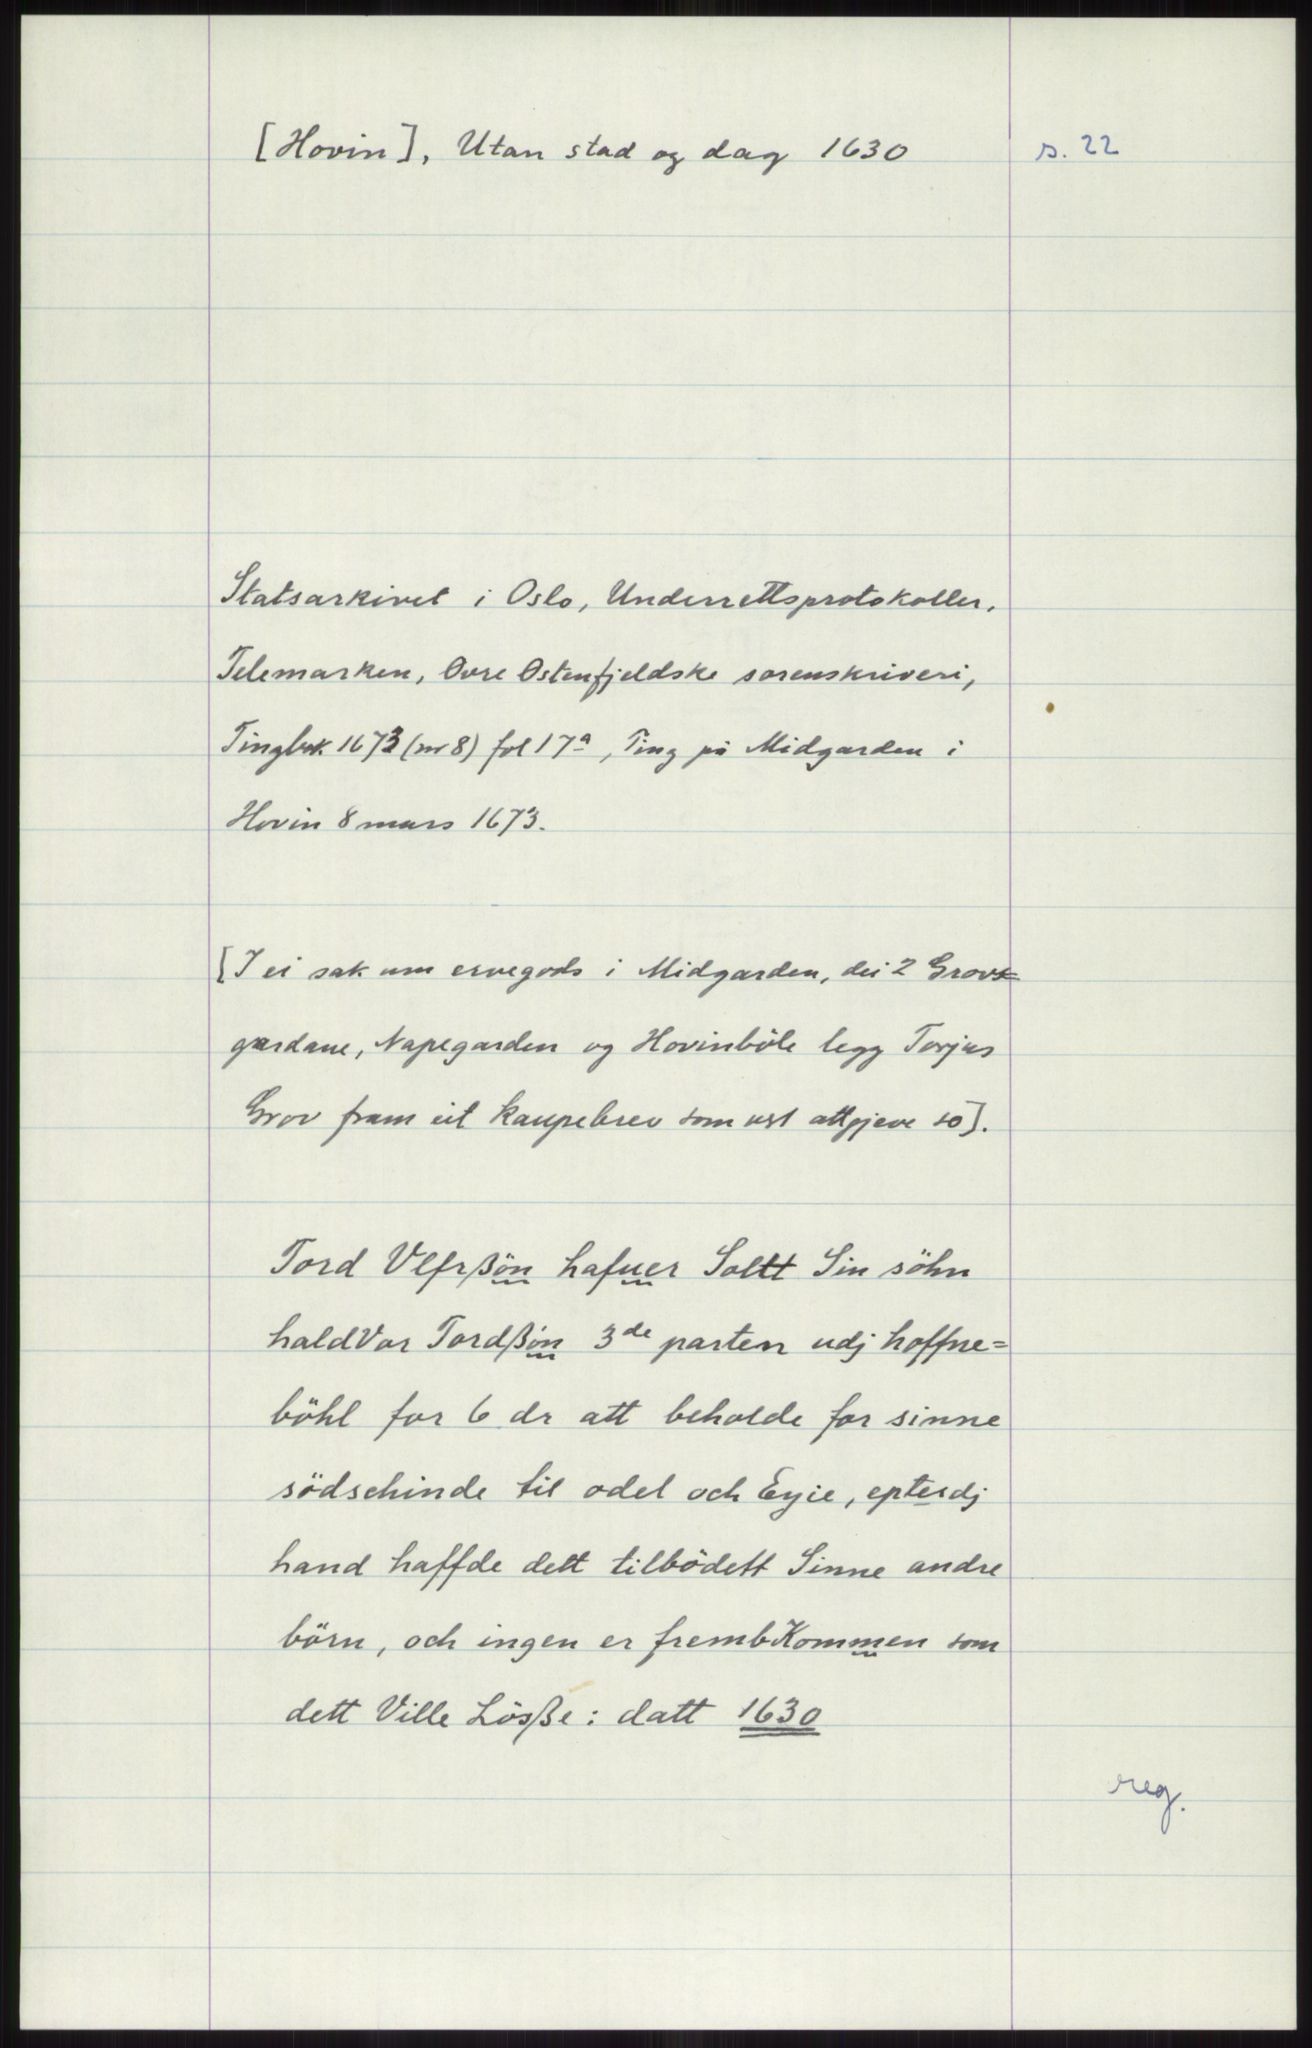 [Hovin], Utan stad og dag 1630
s. 22
Statsarkivet i Oslo, Underrettsprotokoller,
Telemarken, Øvre Østenfjeldske sorenskriveri,
Tingbok 1673 (nr 8) fol 17a, Ting på Midgarden i
Hovin 8 mars 1673.
[I ei sak um ervegods i Midgarden, dei 2 Grovs=
gardane, Napegarden og Hovinbøle legg Torjus
Grov fram eit kaupebrev som vert attgjeve so].
Tord Vlfrßön hafuer Soltt Sin söhn
haldVor Tordßön 3de parten udj hoffne=
böhl for 6 dr att beholde for sinne
södschinde til odel och Eyie, epterdj
hand haffde dett tilbödett Sinne andre
börn, och ingen er frembKommen som
dett Ville Lösße: datt 1630
reg.